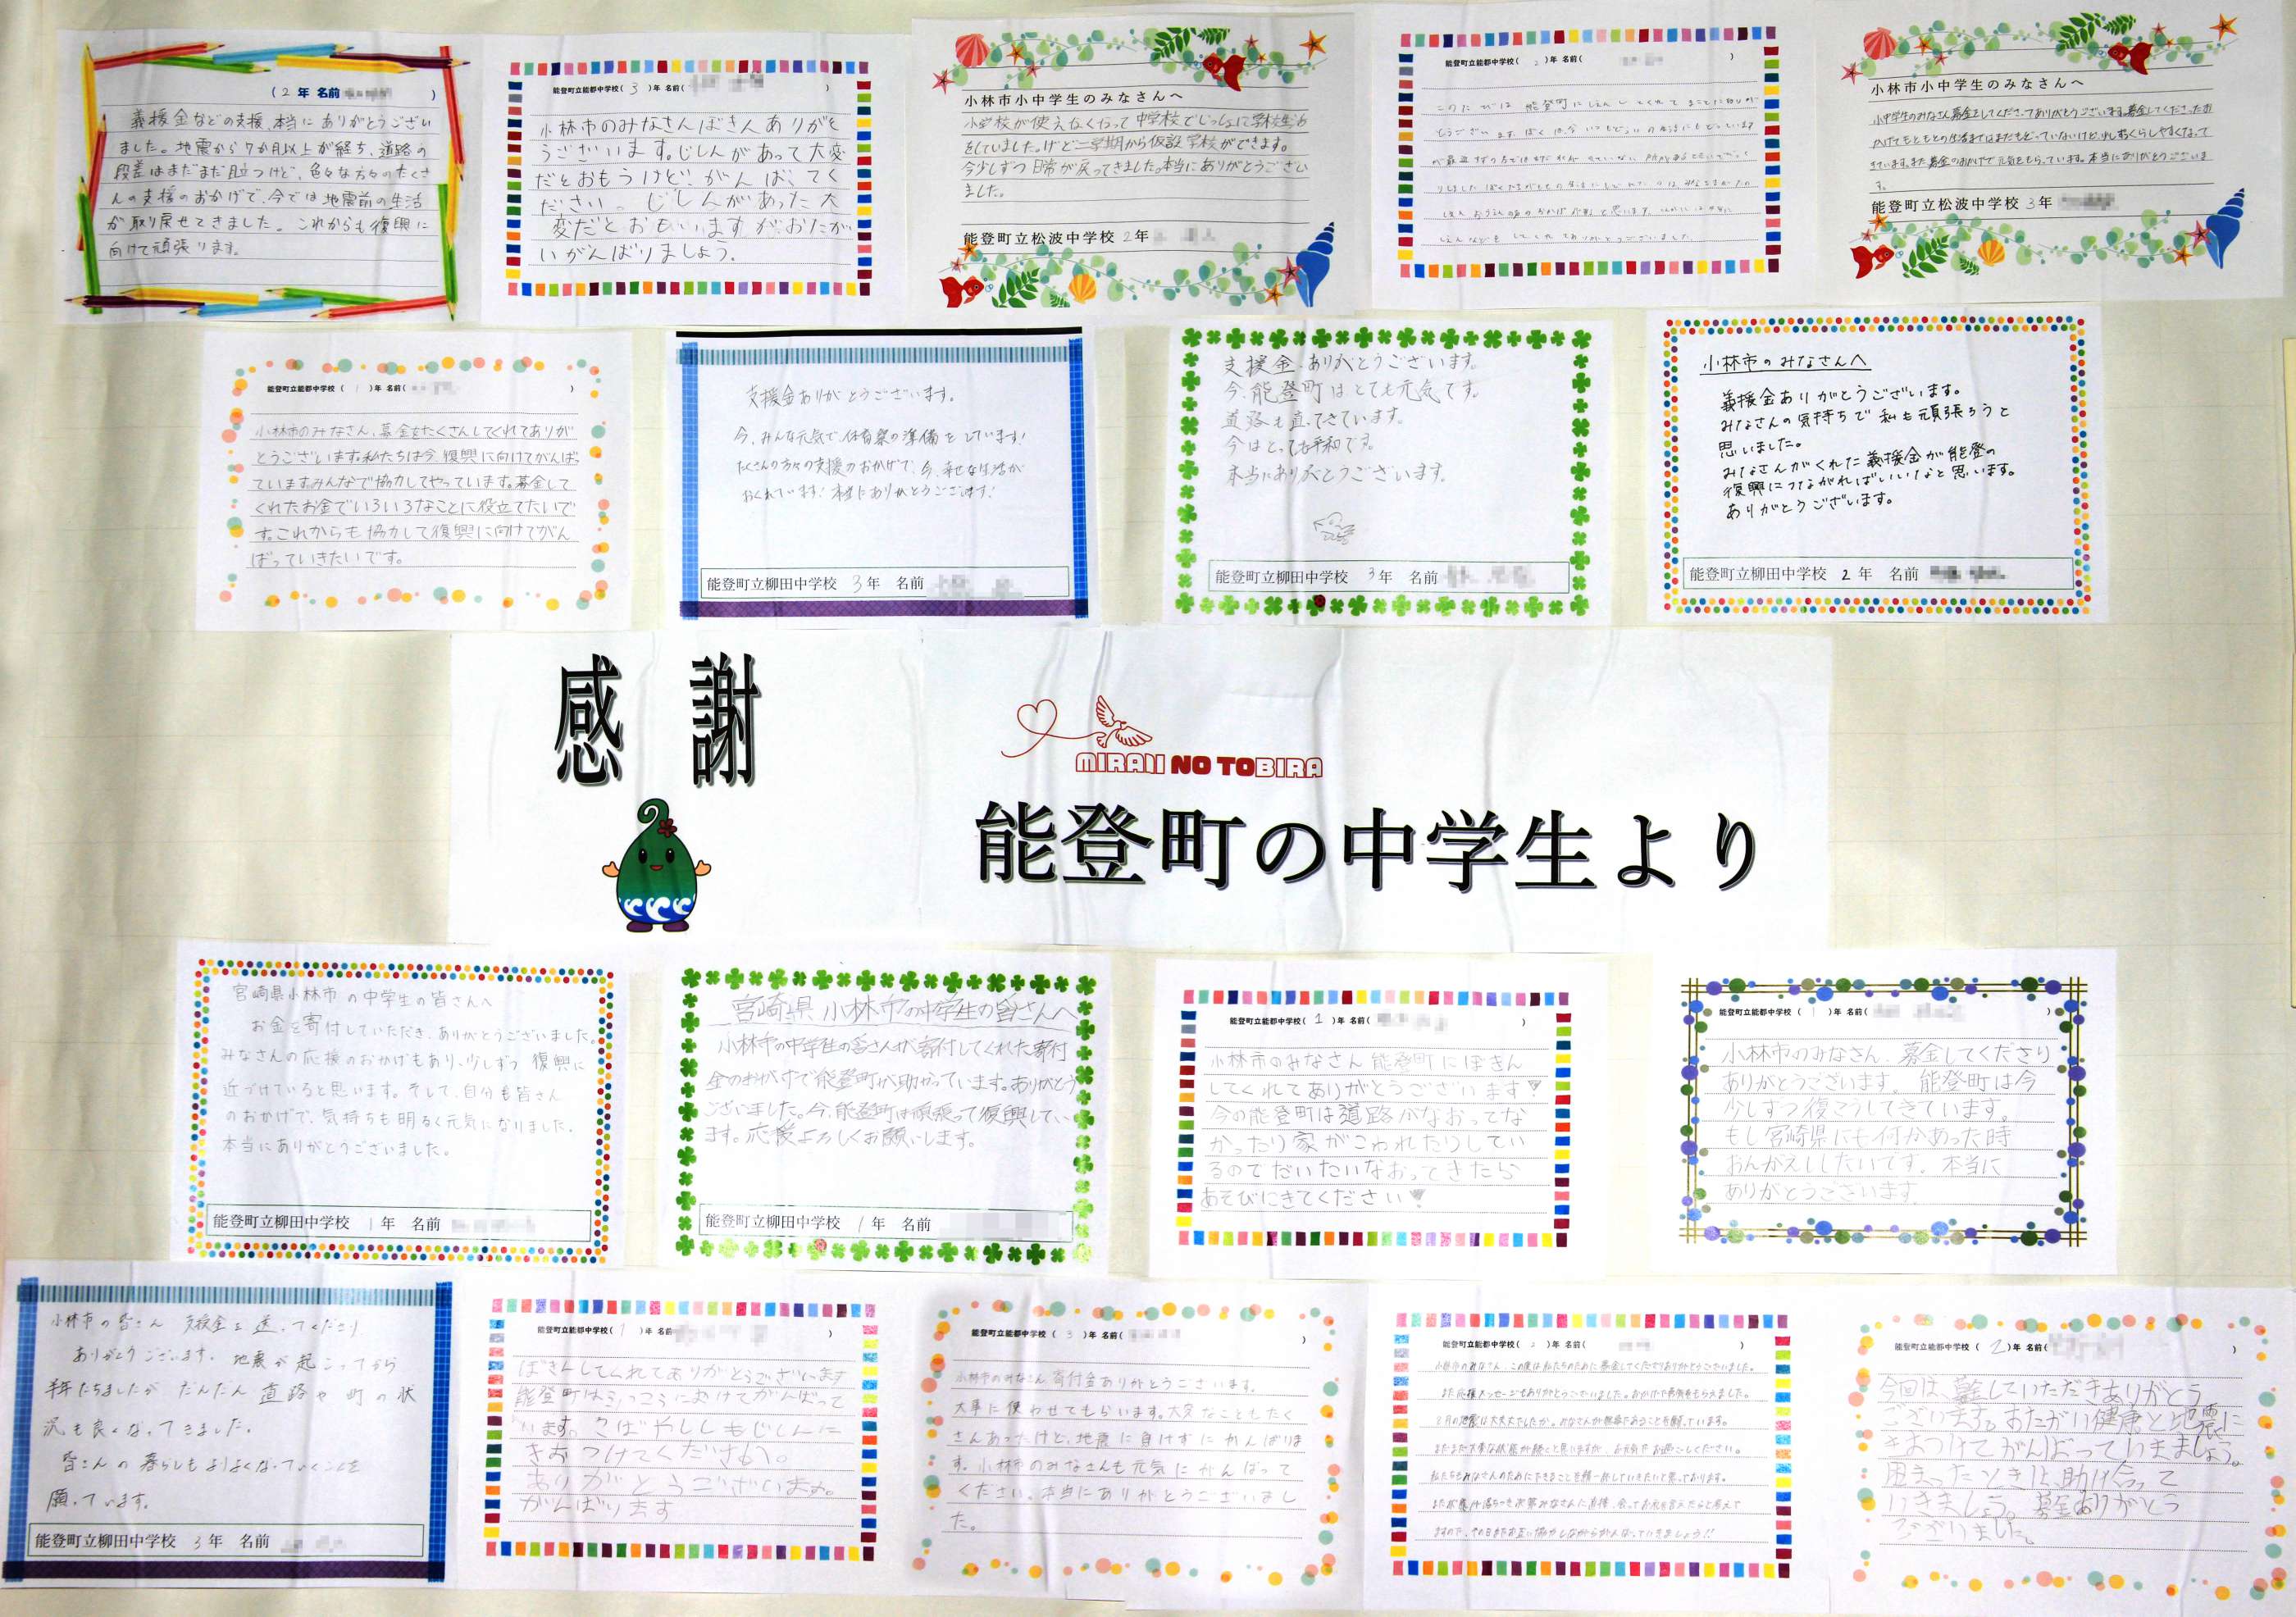 (2年 名前 )
義援金などの支援、本当にありがとうござい
ました。地震から7か月以上が経ち、道路の
段差はまだまだ目立つけど、色々な方々のたくさ
んの支援のおかげで、今では地震前の生活
が取り戻せてきました。これからも復興に
向けて頑張ります。
能登町立能都中学校(3)年 名前( )
小林市のみなさんぼきんありがと
うございます。じしんがあって大変
だとおもうけど、がんばってく
ださい。じしんがあった大
変だとおもいますがおたが
いがんばりましょう。
小林市小中学生のみなさんへ
小学校が使えなくなって中学校でいっしょに学校生活
をしていました。けど二学期から仮設学校ができます。
今少しずつ日常が戻ってきました。本当にありがとうござい
ました。
能登町立松波中学校2年
能登町立能都中学校(2)年 名前( )
このたびは 能登町にしえんしてくれてまことにありが
とうございます。
しえんなどをしてくれてありがとうございました。
小林市小中学生のみなさんへ
小中学生のみなさん募金をしてくださってありがとうございます。募金してくださったお
かげでもともとの生活まではまだもどっていないけど、少しずつくらしやすくなって
きています。また募金のおかげで元気をもらっています。本当にありがとうございま
す。
能登町立松波中学校3年
能登町立能都中学校(1)年 名前( )
小林市のみなさん、募金をたくさんしてくれてありが
とうございます。私たちは今、復興に向けてがんばっ
ていますみんなで協力してやっています。募金して
くれたお金でいろいろなことに役立てたいで
す。これからも協力して復興に向けてがん
ばっていきたいです。
支援金ありがとうございます。
今、みんな元気で、体育祭の準備をしています!
たくさんの方々の支援のおかげで、今、幸せな生活が
おくれています!本当にありがとうございます!
能登町立柳田中学校 3年 名前
支援金、ありがとうございます。
今、能登町はとても元気です。
道路も直ってきています。
今はとっても平和です。
本当にありがとうございます。
能登町立柳田中学校 3年 名前
小林市のみなさんへ
義援金ありがとうございます。
みなさんの気持ちで私も頑張ろうと
思いました。
みなさんがくれた義援金が能登の
復興につながればいいなと思います。
ありがとうございます。
能登町立柳田中学校 2年 名前
感謝
MIRAII NO TOBIRA
能登町の中学生より
宮崎県小林市の中学生の皆さんへ
お金を寄付していただき、ありがとうございました。
みなさんの応援のおかげもあり、少しずつ復興に
近づけていると思います。そして、自分も皆さん
のおかげで、気持ちも明るく元気になりました。
本当にありがとうございました。
能登町立柳田中学校 1年 名前
宮崎県 小林市の中学生の皆さんへ
小林市の中学生の皆さんが寄付してくれた寄付
金のおかげで能登町が助かっています。ありがとう
ございました。今、能登町は頑張って復興してい
ます。応援よろしくお願いします。
能登町立柳田中学校 1年 名前
能登町立能都中学校(1)年 名前( )
小林市のみなさん能登町にぼきん
してくれてありがとうございます♥
今の能登町は道路がなおってな
かったり家がこわれたりしてい
るのでだいたいなおってきたら
あそびにきてください♥
能登町立能都中学校(1)年 名前( )
小林市のみなさん、募金してくださり
ありがとうございます。能登町は今
少しずつ復こうしてきています。
もし宮崎県にも何かあった時
おんがえししたいです。本当に
ありがとうございます
小林市の皆さん 支援金を送ってくださり
ありがとうございます。地震が起こってから
半年たちましたが だんだん 道路や町の状
況も良くなってきました。
皆さんの暮らしもよりよくなっていくことを
願っています。
能登町立柳田中学校 3年 名前
能登町立能都中学校(1)年 名前
ぼきんしてくれてありがとうございます
能登町はふっこうにむけてがんばって
います。こばやししもじしんに
きおつけてください。
ありがとうございます。
がんばります
能登町立能都中学校(3)年 名前( )
小林市のみなさん寄付金ありがとうございます。
大事に使わせてもらいます。大変なこともたく
さんあったけど、地震に負けずにがんばりま
す。小林市のみなさんも元気にがんばって
ください。本当にありがとうございまし
た。
能登町立能都中学校(2)年 名前( )
小林市のみなさん、この度は私たちのために募金してくださりありがとうございました。
また応援メッセージもありがとうございました。おかげで勇気をもらえました。
8月の地震は大丈夫でしたか。みなさんが無事であることを願っています。
まだまだ大変な状態が続くと思いますが、お元気でお過ごしください。
私たちもみなさんのためにできることを精一杯していきたいと思っております。
ますので、その日までお互い協力しながらがんばっていきましょう!!
能登町立能都中学校(2)年 名前( )
今回は、募金していただきありがとう
ございます。おたがい健康と地震に
きをつけてがんばっていきましょう。
困ったときは、助け合って
いきましょう。募金ありがとう
ございました。